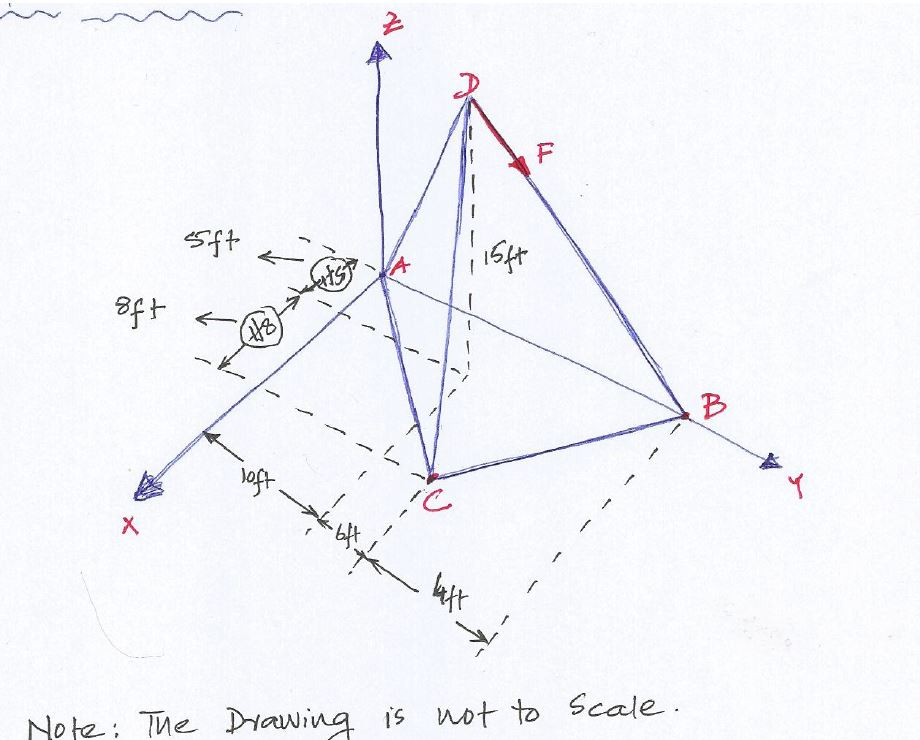 Z
D
F
5ft
A
15ft
5ft
8ft
8ft
B
10ft
C
Y
X
6ft
4ft
Note: The Drawing is not to Scale.